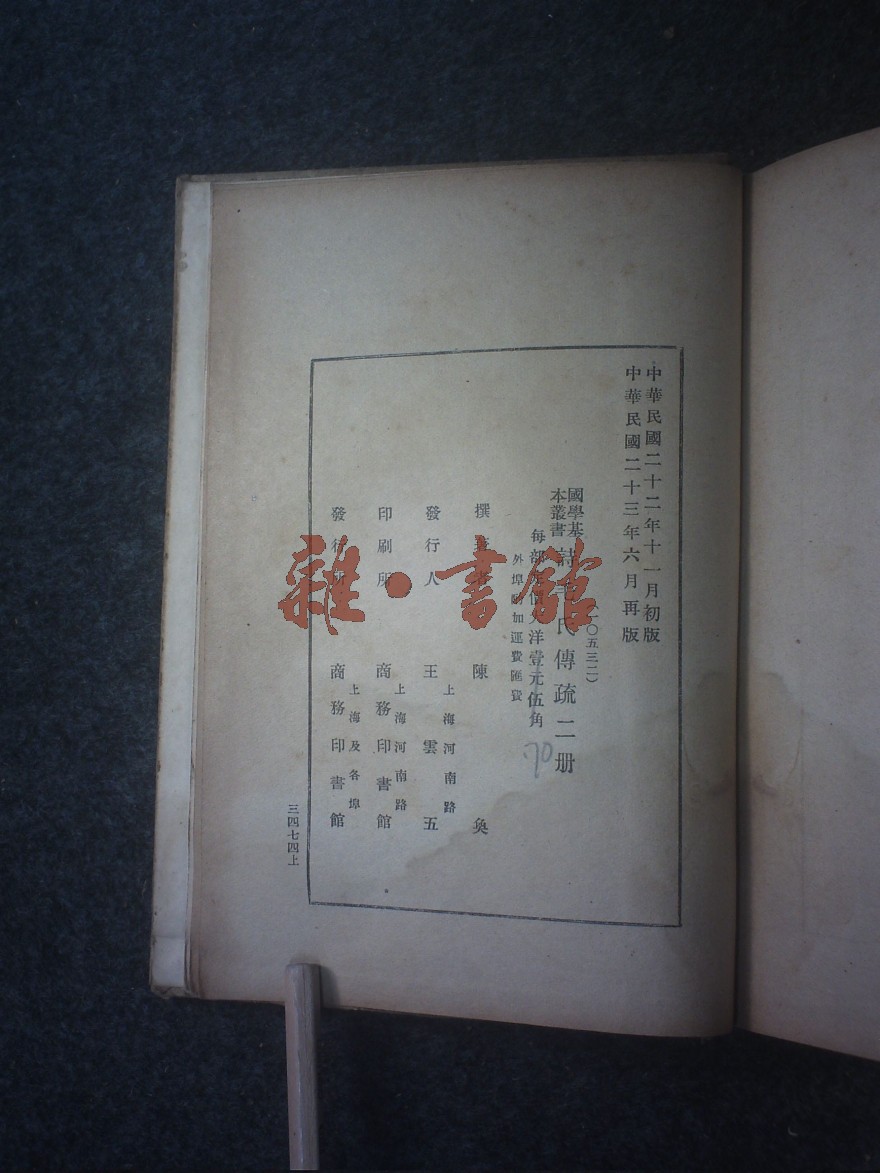 中華民國二十二年十一月初版
中華民國二十三年六月再版
(一〇五三二)
國學基本叢書
詩毛氏傳疏二册
每部定價大洋壹元伍角
外埠酌加運費匯費
70
撰述者 陳奐
上海河南路
發行人 王雲五
上海河南路
印刷所 商務印書館
上海及各埠
發行所 商務印書館
三四七四上
雜·書館